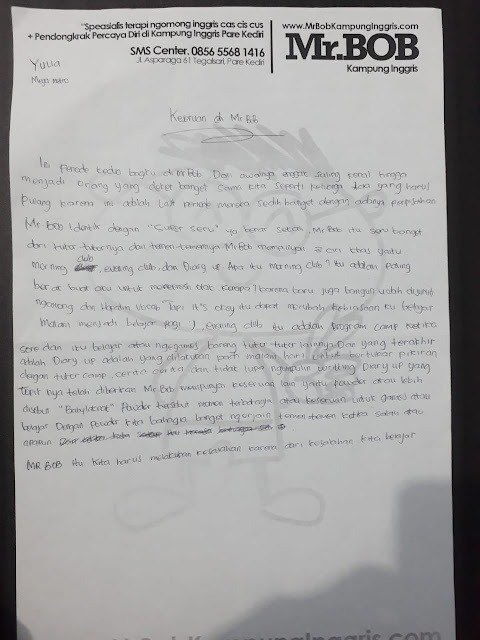 "Speasialis terapi ngomong inggris cas cis cus
+ Pendongkrak Percaya Diri di Kampung Inggris Pare Kediri
SMS Center. 0856 5568 1416
Jl. Asparaga 61 Tegalsari, Pare Kediri
www.MrBobKampungInggris.com
Mr.BOB
Kampung Inggris
Yulia
Mega
Keseruan di Mr Bob
Ini Periode kedua bagiku di Mr Bob. Dari awalnya enggak saling kenal hingga
menjadi orang yang deket banget sama kita seperti keluarga ada yang harus
Pulang karena ini adalah last periode mereka sedih banget dengan adanya perpisahan
Mr Bob Identik dengan "Super seru" ya benar sekali, Mr Bob itu seru banget
dari tutor tutornya dan temen-temennya Mr.Bob mempunyai 3 ciri khas yaitu
Morning club, evening club, dan Diary up. Apa itu Morning club? Itu adalah paling
berat buat aku untuk
ngomong dan Hapalin vocab. Tapi It's okey itu dapat merubah kebiasaan ku belajar
malam menjadi belajar pagi :), evening club itu adalah program camp ketika
sore dan itu belajar atau ngegames bareng tutor-tutor lainnya. Dan yang terakhir
adalah Diary up adalah yang dilakukan pada malam hari untuk bertukar pikiran
dengan tutor camp, cerita cerita dan tidak lupa ngumpulin writing Diary up yang
topik nya telah diberikan Mr Bob mempunyai keseruan lain yaitu powder atau lebih
disebut
belajar Dengan powder kita bahagia banget ngerjain temen temen ketika salah atau
MR BOB itu kita harus melakukan kesalahan karena dari kesalahan kita belajar